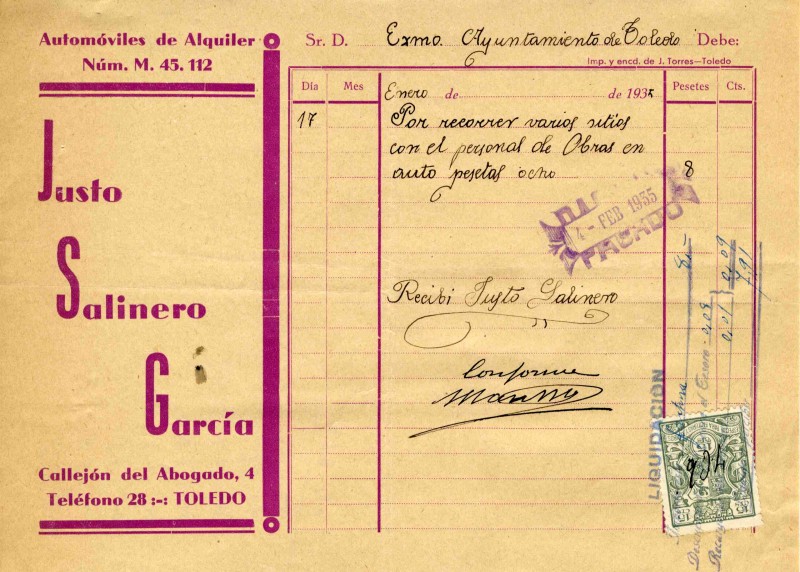 Automóviles de Alquiler
Núm. M. 45. 112
Justo
Salinero
García
Callejón del Abogado, 4
Teléfono 28 :-: TOLEDO
Sr. D. Exmo. Ayuntamiento de Toledo Debe:
Imp. y encd. de J. Torres-Toledo
Día Mes Pesetes Cts.
Enero de de 1935
17 Por recorrer varios sitios
con el personal de Obras en
auto pesetas ocho 8
4 - FEB 1935
PAGADO
Recibi Justo Salinero
Conforme
LIQUIDACIÓN
0,09
7,91
0,01
934
15 15